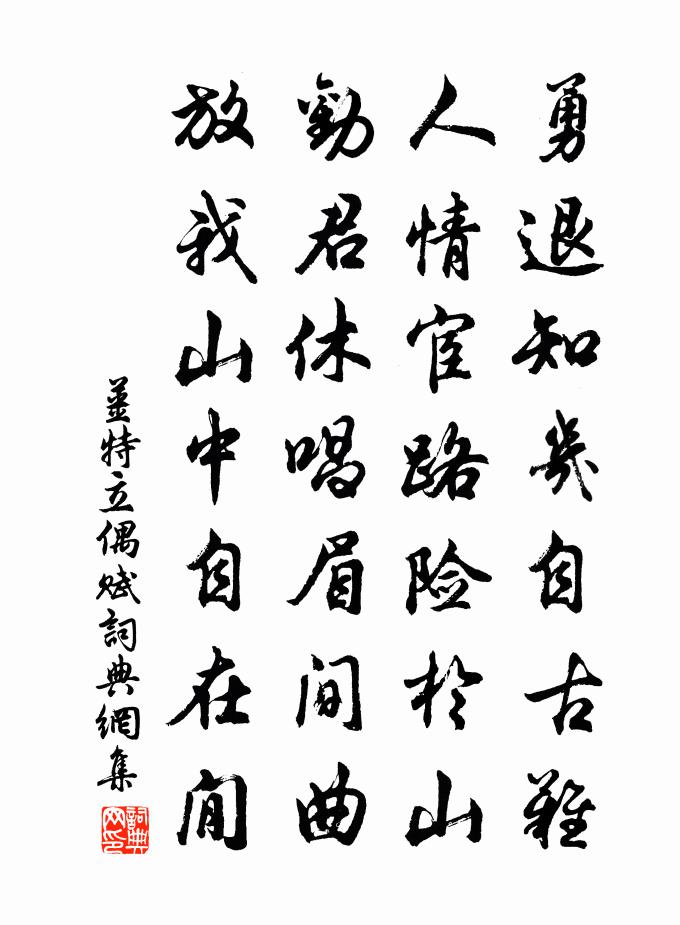 勇退知幾自古難
人情宦路险於山
勸君休唱眉间曲
放我山中自在閒
薑特立偶赋詞典網集
詞典网印